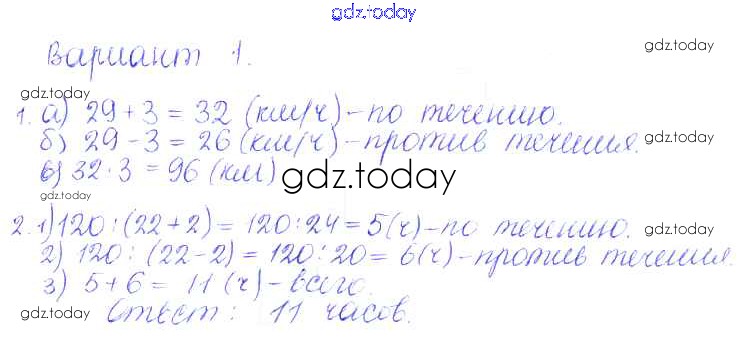 gdz.today
Вариант 1.
gdz.today
gdz.today
1. а) 29 + 3 = 32 (км/ч) – по течению.
б) 29 – 3 = 26 (км/ч) – против течения.
gdz.today
в) 32 · 3 = 96 (км)
gdz.today
gdz.today
2. 1) 120 : (22 + 2) = 120 : 24 = 5 (ч) – по течению.
gdz.today
2) 120 : (22 – 2) = 120 : 20 = 6 (ч) – против течения.
3) 5 + 6 = 11 (ч) – всего.
Ответ : 11 часов.
gdz.today
gdz.today